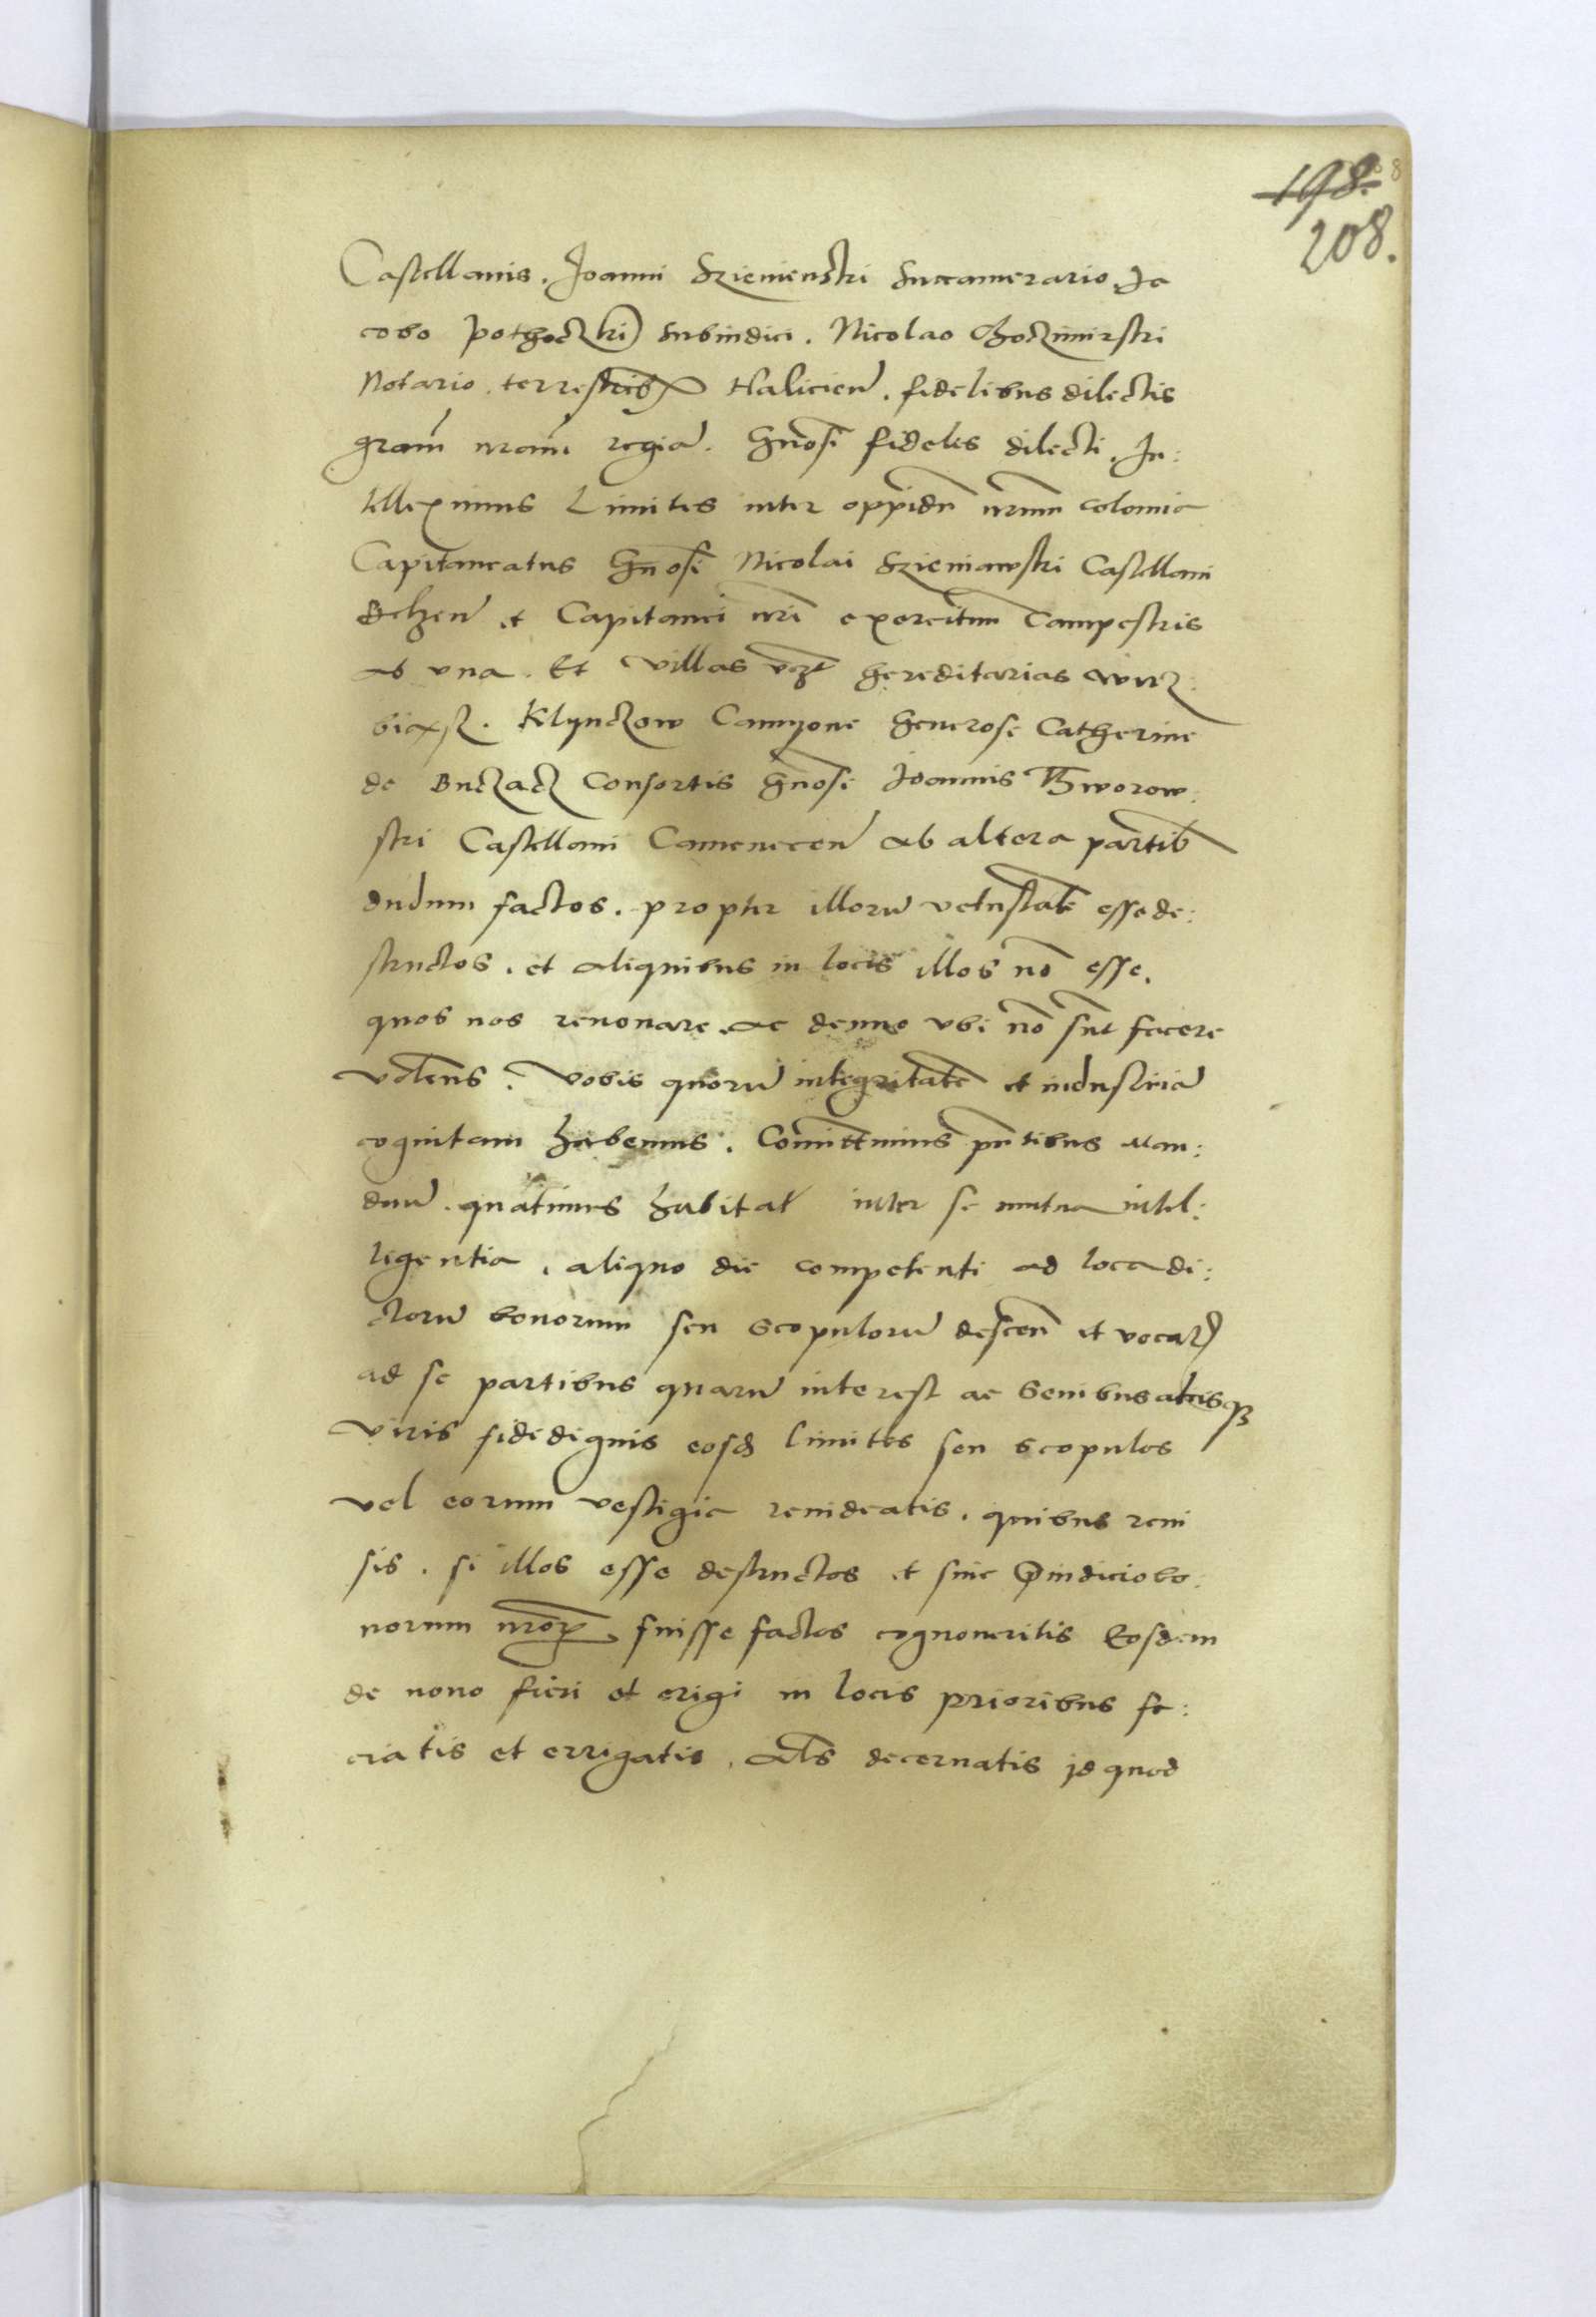 198.
208.
Castellanis. Joanni Szienienski Succamerario. Ja
cobo Pothoczki Subiudici. Nicolao Choczimirski
Notario terrestrib9 Halicien̄. fidelibus dilectis
gram̄ nram̄ regiā. Gnosi fideles dilecti. In:
telleximus Limites inter oppidū nrum̄ Colomia
Capitaneatus Gnosi Nicolai Szieniawski Castellani
Belzen̄ et Capitanei nri exercituum Campestris
ab vna. Et villas hereditarias
Klynczow Generose Catherine
de Buczacz Consortis Gnosi Joannis Thworow:
ski Castellani Camenecen̄ ab altera partib9
dudum factos. propter illorū vetustatē esse de:
structos. et aliquibus in locis illos nō esse.
quos nos renouare ac denuo vbi nō sunt facere
volen̄s. Vobis quorū integritatē et industriā
cognitam habemus. Comittimus pn̄tibus Man:
damus quatinus habita inter se mutua intel:
ligentia. aliquo die competenti ad loca di:
ctorū bonorum seu scopulorū descen̄ et vocatis
ad se partibus quarū interest ac Senibus aliisq3
viris fidedignis eosd Limites seu scopulos
vel eorum vestigia reuideatis. quibus reui
sis. si illos esse destructos et sine p̄iudicio bo:
norum nror fuisse factos cognoueritis Eosdem
de nouo fieri et erigi in locis prioribus fa:
ciatis et errigatis. als decernatis id quod